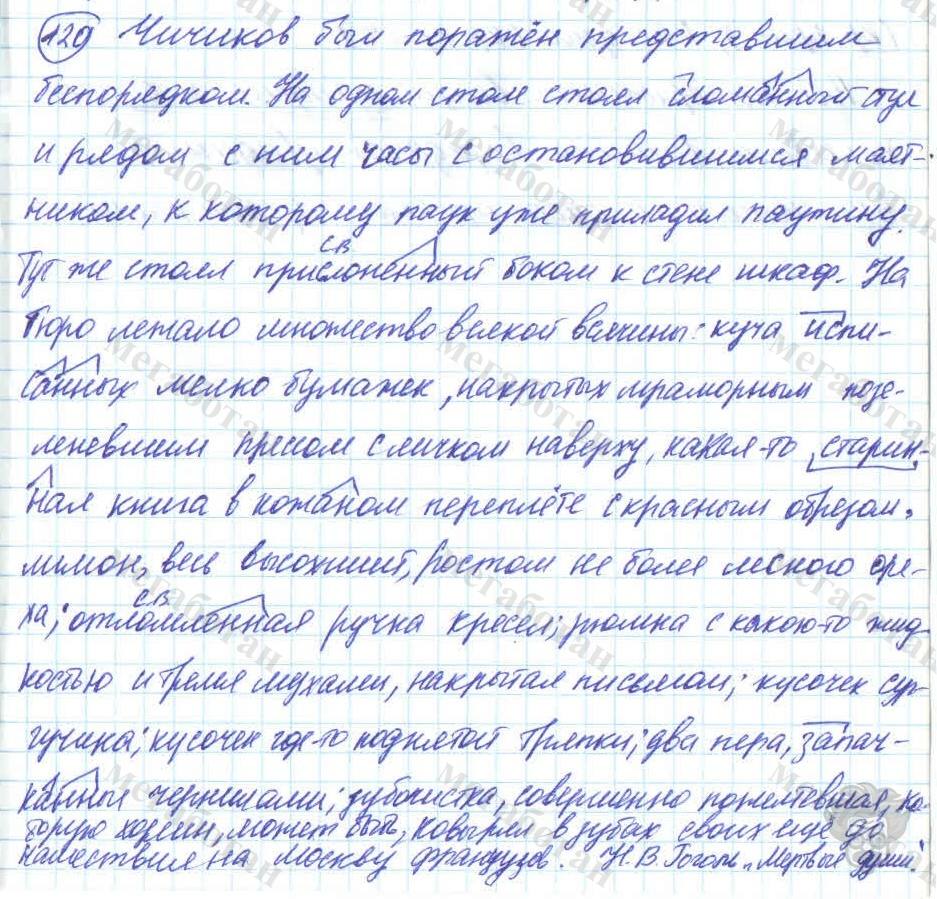 120 Чичиков был поражён представшим
беспорядком. На одном столе стоял сломанный стул
и рядом с ним часы с остановившимся маят-
ником, к которому паук уже приладил паутину.
Тут же стоял прислонённый боком к стене шкаф. На
бюро лежало множество всякой всячины: куча испи-
санных мелко бумажек, накрытых мраморным позе-
леневшим прессом с яичком наверху, какая-то старин-
ная книга в кожаном переплёте с красным обрезом,
лимон, весь высохший, ростом не более лесного оре-
ха; отломленная ручка кресел; рюмка с какою-то жид
костью и тремя мухами, накрытая письмом; кусочек сур-
гучика; кусочек где-то поднятой тряпки; два пера, запач-
канные чернилами; зубочистка, совершенно пожелтевшая, ко-
торую хозяин, может быть, ковырял в зубах своих ещё до
нашествия на Москву французов. Н.В. Гоголь "Мертвые души".
Мегаботан